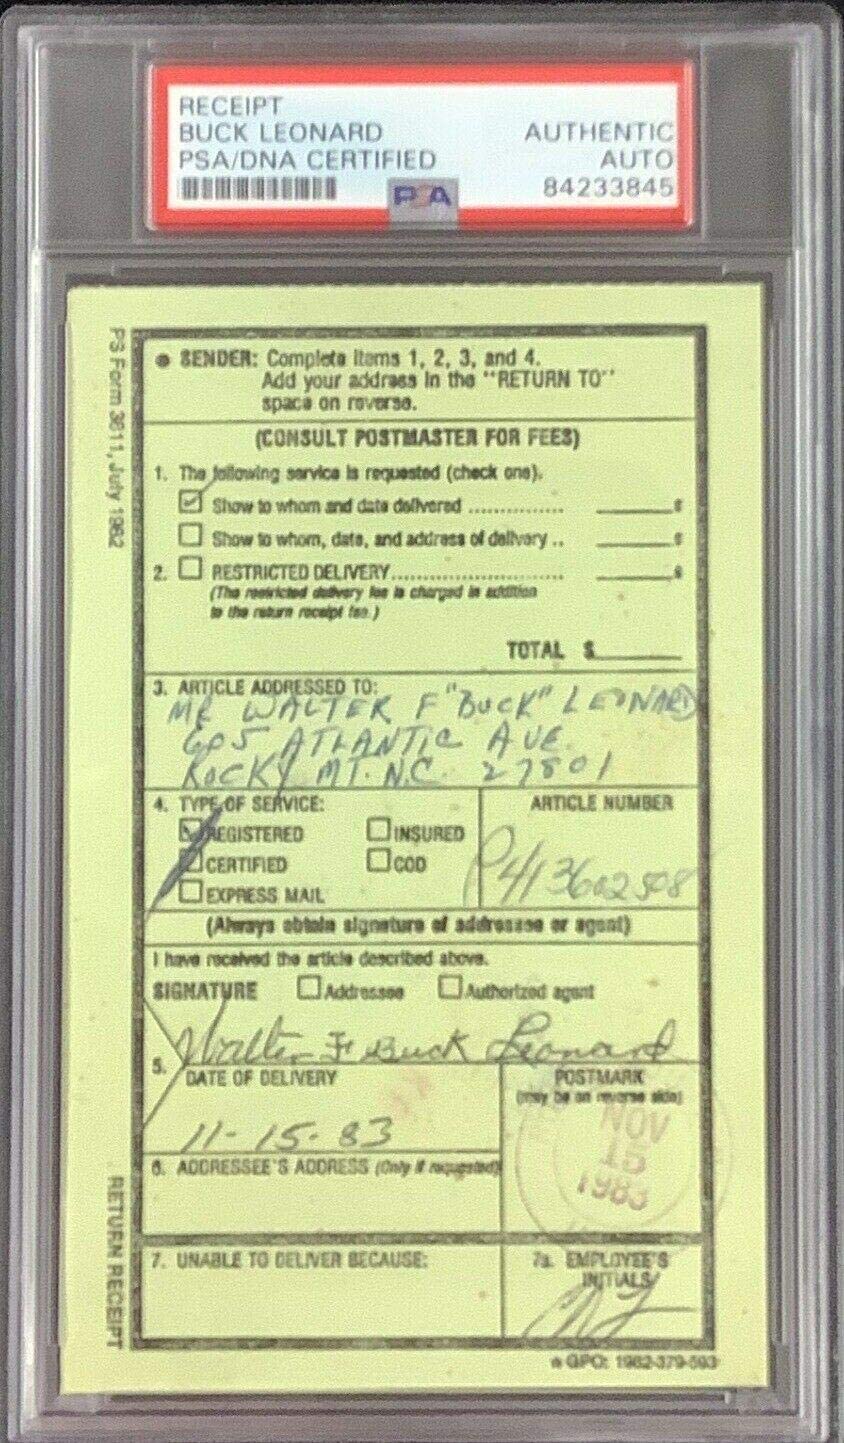 RECEIPT
BUCK LEONARD AUTHENTIC
PSA/DNA CERTIFIED AUTO
PSA 84233845
PS Form 3811, July 1982
● SENDER: Complete items 1, 2, 3, and 4.
Add your address in the "RETURN TO"
space on reverse.
(CONSULT POSTMASTER FOR FEES)
1. The following service is requested (check one).
Show to whom and date delivered ............... ¢
Show to whom, date, and address of delivery .. ¢
2. RESTRICTED DELIVERY........................... ¢
(The restricted delivery fee is charged in addition
to the return receipt fee.)
TOTAL $
3. ARTICLE ADDRESSED TO:
MR WALTER F "BUCK" LEONARD
605 ATLANTIC AVE.
ROCKY MT. N.C. 27801
4. TYPE OF SERVICE: ARTICLE NUMBER
REGISTERED INSURED
CERTIFIED COD
EXPRESS MAIL
P413602508
(Always obtain signature of addressee or agent)
I have received the article described above.
SIGNATURE Addressee Authorized agent
Walter F. Buck Leonard
5. DATE OF DELIVERY POSTMARK
(may be on reverse side)
11-15-83
NOV
15
1983
6. ADDRESSEE'S ADDRESS (Only if requested)
7. UNABLE TO DELIVER BECAUSE: 7a. EMPLOYEE'S
INITIALS
RETURN RECEIPT
GPO: 1982-379-593